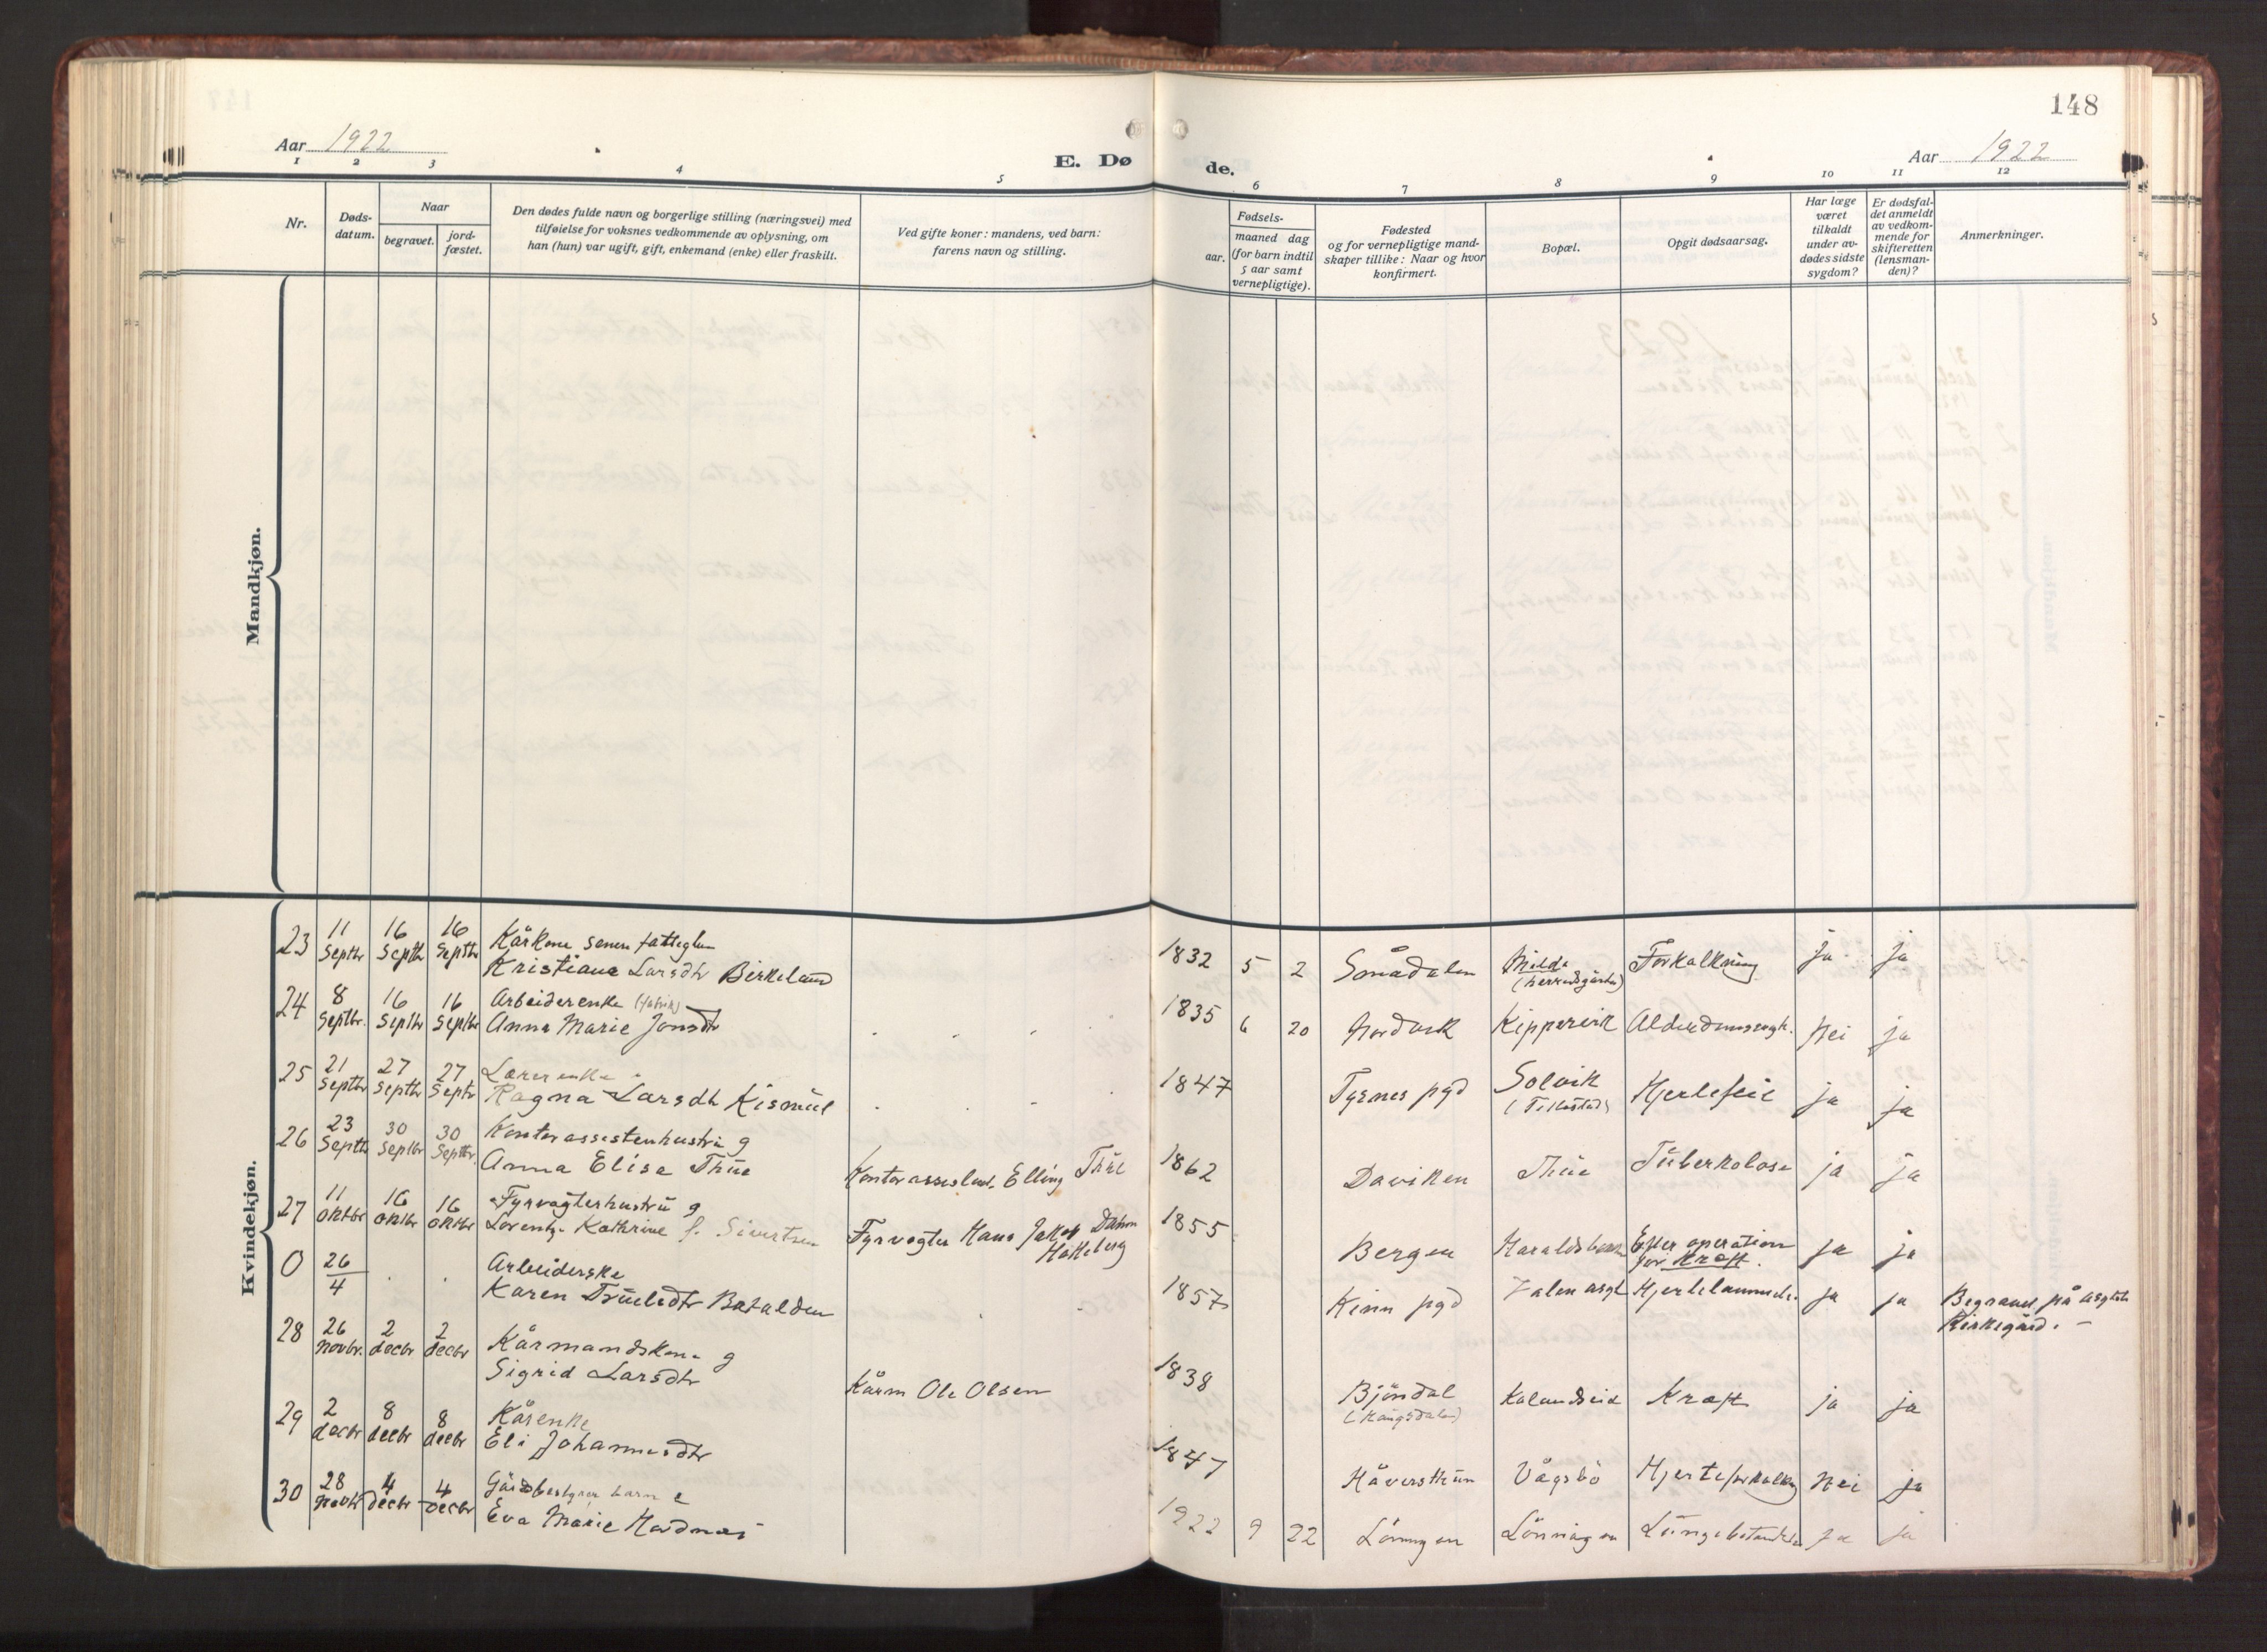 148
Aar 1922
E. Dø
de.
Aar 1922
1 2 3 4 5 6 7 8 9 10 11 12
Nr.
Døds-
datum.
Naar
begravet.
jord-
fæstet.
Den dødes fulde navn og borgerlige stilling (næringsvei) med
tilføielse for voksnes vedkommende av oplysning, om
han (hun) var ugift, gift, enkemand (enke) eller fraskilt.
Ved gifte koner: mandens, ved barn:
farens navn og stilling.
Fødsels-
aar.
maaned dag
(for barn indtil
5 aar samt
vernepligtige).
Fødested
og for vernepligtige mand-
skaper tillike: Naar og hvor
konfirmert.
Bopæl.
Opgit dødsaarsag.
Har læge
været
tilkaldt
under av-
dødes sidste
sygdom?
Er dødsfal-
det anmeldt
av vedkom-
mende for
skifteretten
(lensman-
den)?
Anmerkninger.
Mandkjøn.
Kvindekjøn.
23 11 16 16 Kårkone
Septbr Septbr Septbr Kristiane Larsdtr Birkeland 1832 5 2 Smådalen Forkalkning ja ja
24 8 16 16 Arbeiderenke (fabrik)
Septbr. Septbr Septbr Anna Marie Jonsdtr 1835 6 20 Nordvik Kippervik Nei ja
25 21 27 27 Lærerenke
Septbr Septbr Septr Ragna Larsdtr Kismül 1847 Tysnes pgd Solvik Hjertefeil ja ja
26 23 30 30 Kontorassistenhustru g
Septbr Septbr Septbr. Anna Elisa Thüe Kontorassistent Elling Thüe 1862 Daviken Thüe Tüberkolose ja ja
27 11 16 16 Fyrvogterhustrü g
Oktbr Oktbr Oktbr Kathrine f. Sivertsen Fyrvogter Hans Jakob 1855 Bergen Efter operation ja ja
for Kræft.
0 26 Arbeiderske
4 Karen Batalden 1857 Kinn pgd ja ja Begravet på
Kirkegård. -
28 26 2 2 Kårmandskone g
Novbr. decbr decbr Sigrid Larsdtr Kårm Ole Olsen 1838 Bjöndal Kalandseid Kræft ja ja
29 2 8 8 Kårenke
decbr decbr decbr Eli Johannesdtr 1847 Håversthün Vågsbö Nei ja
30 28 4 4 Gårdbestyrer barn e
Novbr decbr decbr Eva Marie Hordnæs 1922 9 22 Lönningen Lönningen Lüngebetændelse ja ja